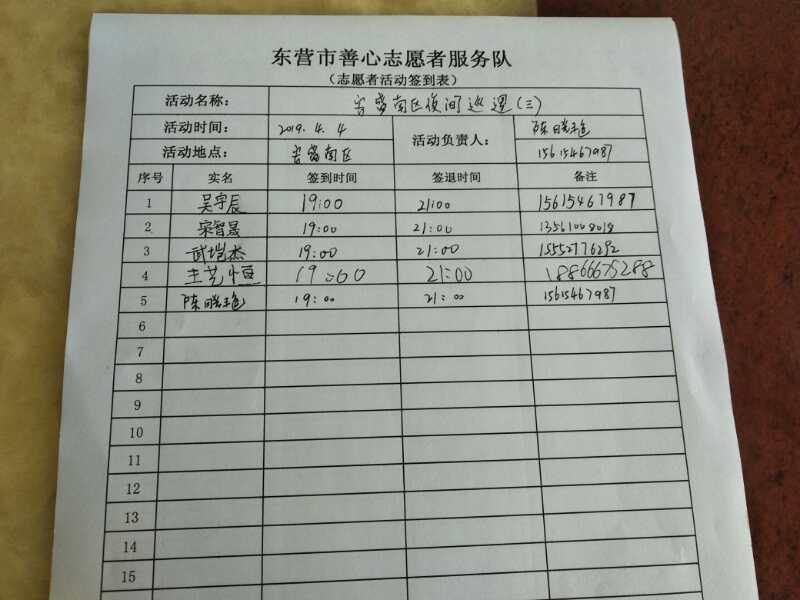 东营市善心志愿者服务队
（志愿者活动签到表）
活动名称： 南区夜间巡逻(三)
活动时间： 2019.4.4 活动负责人： 陈
活动地点： 南区 15615467987
序号 实名 签到时间 签退时间 备注
1 吴宇辰 19:00 21:00 15615467987
2 宋智晟 19:00 21:00
3 武垲杰 19:00 21:00 15552776292
4 王艺恒 19:00 21:00 18866675288
5 陈 19:00 21:00 15615467987
6
7
8
9
10
11
12
13
14
15